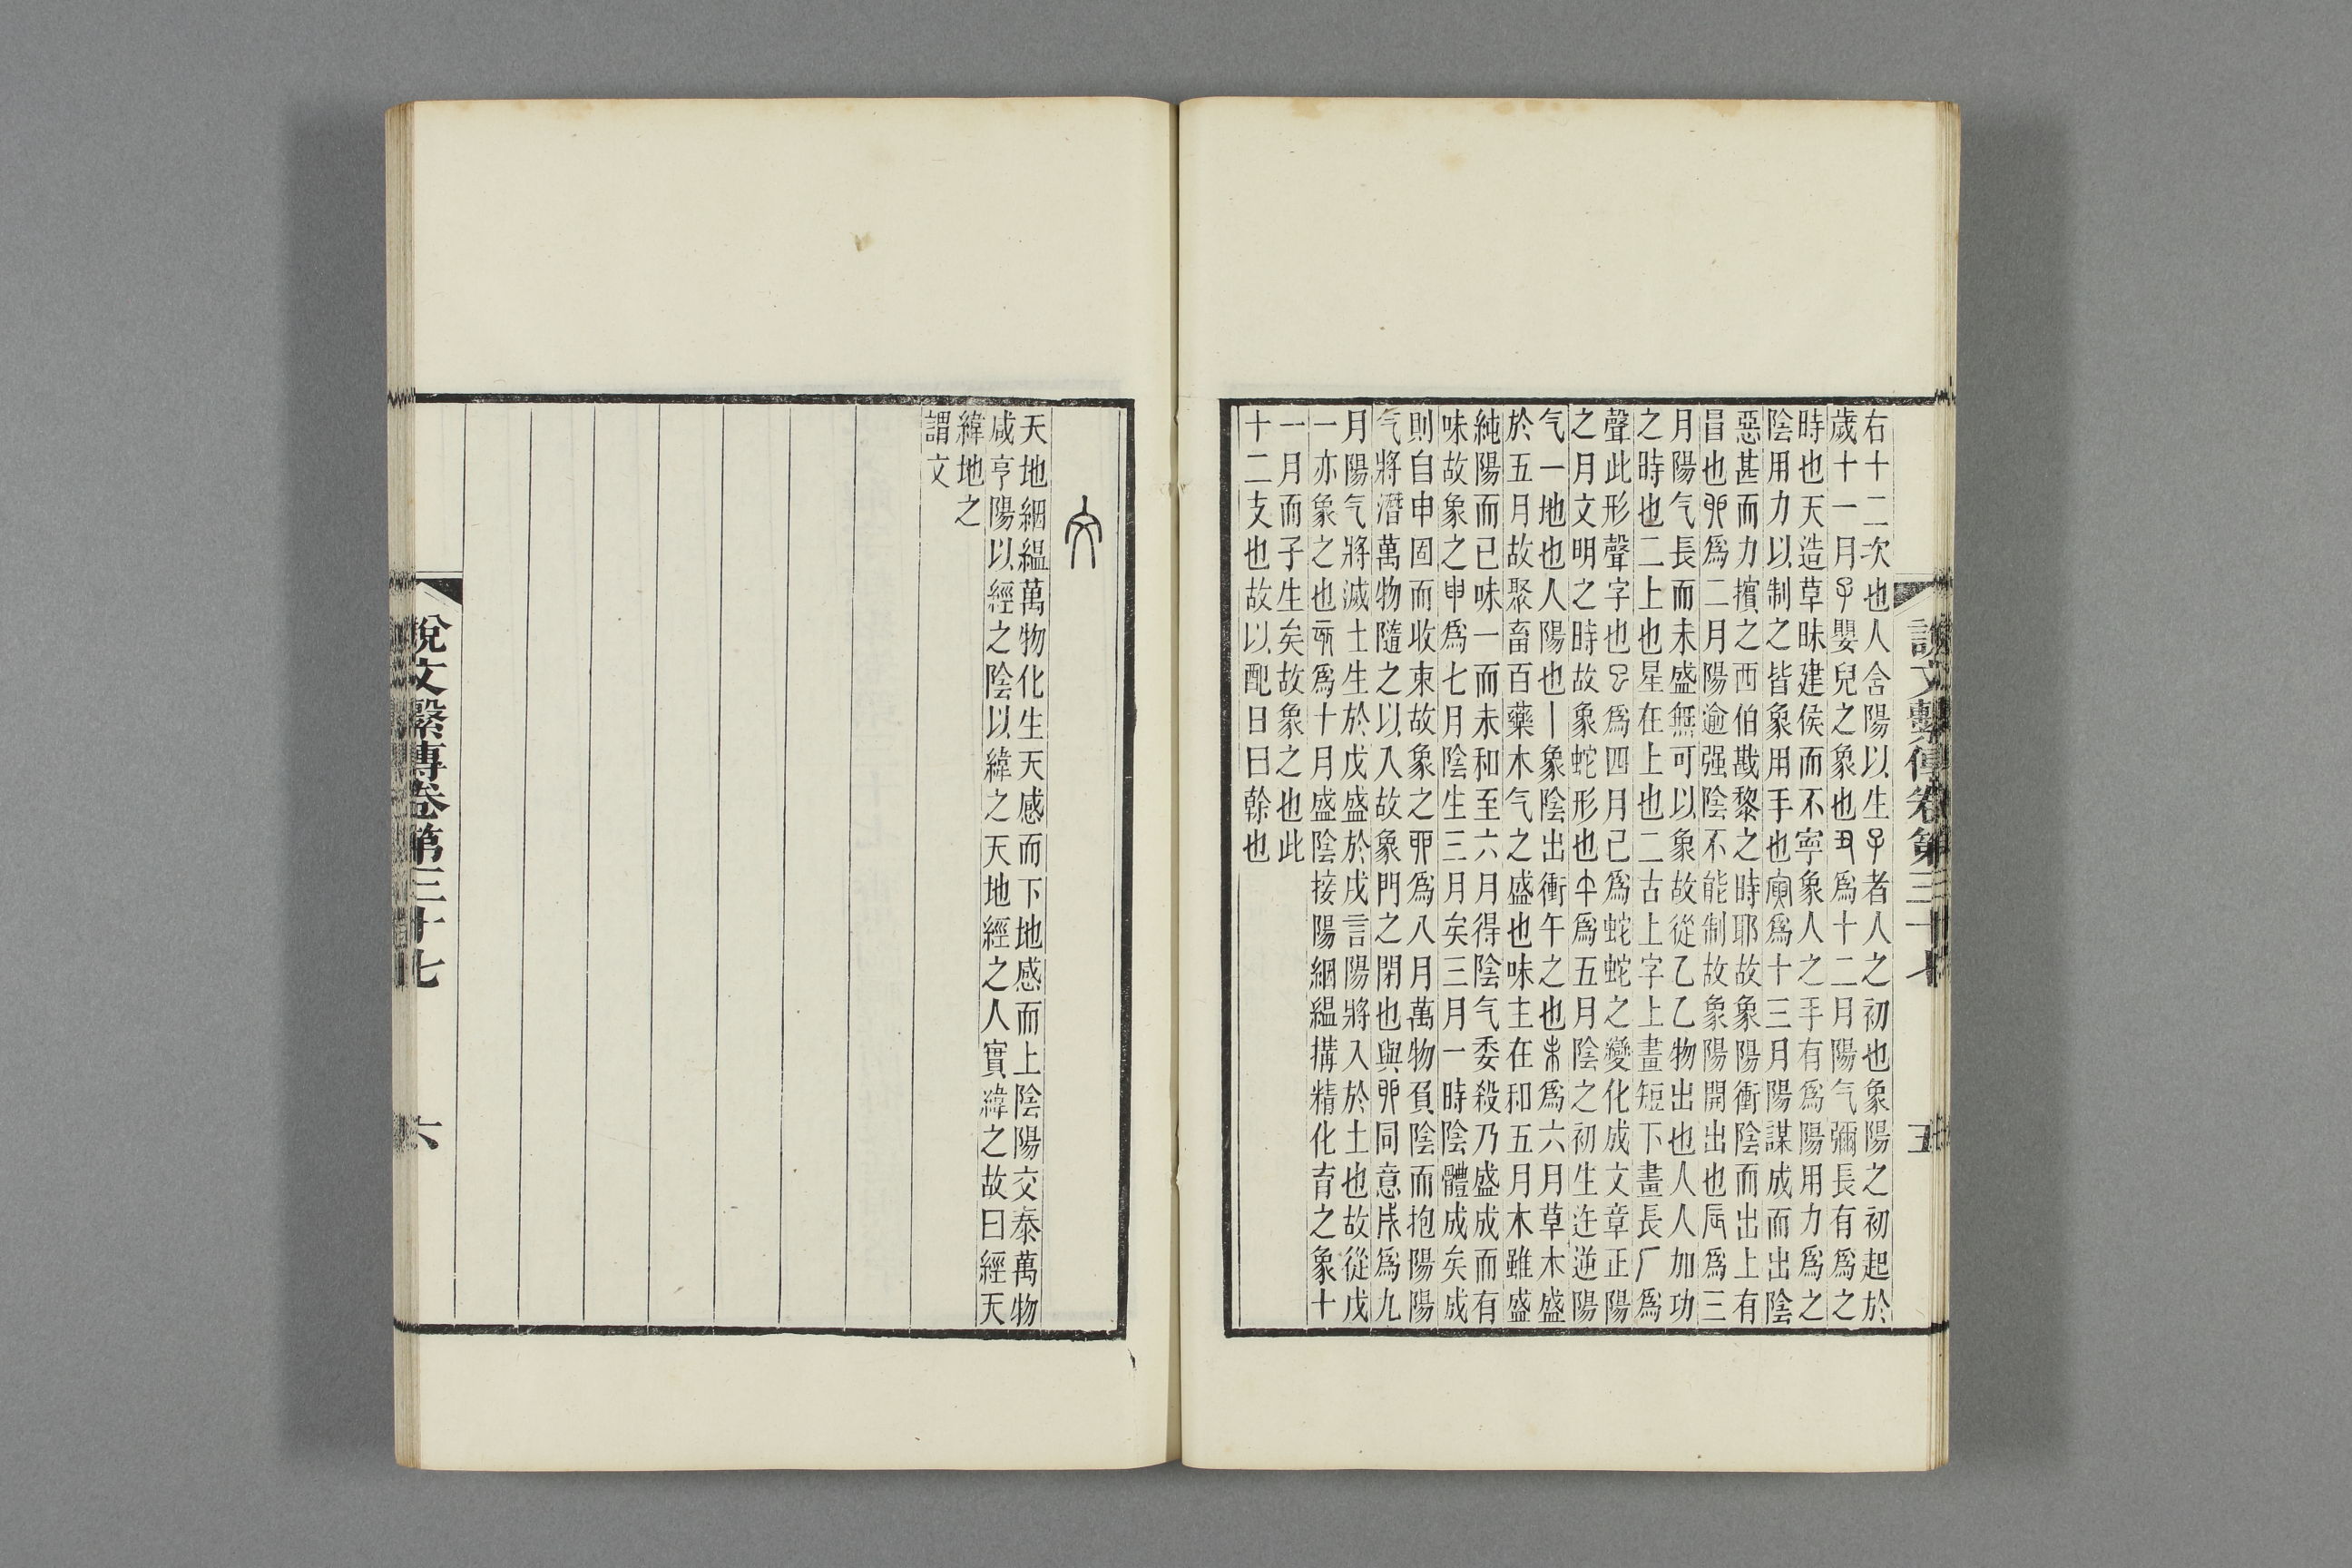 說文繫傳卷第三十七
五
右十二次也人含陽以生子者人之初也象陽之初起於
歲十一月子嬰兒之象也丑爲十二月陽气彌長有爲之
時也天造草昧建侯而不寧象人之手有爲陽用力爲之
陰用力以制之皆象用手也寅爲十三月陽謀成而出陰
惡甚而力擯之西伯戡黎之時耶故象陽衝陰而出上有
冒也卯爲二月陽逾强陰不能制故象陽開出也辰爲三
月陽气長而未盛無可以象故從乙乙物出也人人加功
之時也二上也星在上也二古上字上畫短下畫長厂爲
聲此形聲字也巳爲四月巳爲蛇蛇之變化成文章正陽
之月文明之時故象蛇形也午爲五月陰之初生迕逆陽
气一地也人陽也丨象陰出衝午之也未爲六月草木盛
於五月故聚畜百藥木气之盛也味主在和五月木雖盛
純陽而已味一而未和至六月得陰气委殺乃盛成而有
味故象之申爲七月陰生三月矣三月一時陰體成矣成
則自申固而收束故象之丣爲八月萬物負陰而抱陽陽
气將潛萬物隨之以入故象門之閉也與卯同意戌爲九
月陽气將滅土生於戊盛於戌言陽將入於土也故從戊
一亦象之也亥爲十月盛陰接陽絪緼搆精化育之象十
一月而子生矣故象之也此
十二支也故以配日曰榦也
文
天地絪緼萬物化生天感而下地感而上陰陽交泰萬物
咸亨陽以經之陰以緯之天地經之人實緯之故曰經天
緯地之
謂文
說文繫傳卷第三十七
六